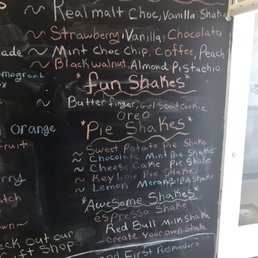 ~ Real malt Choc, Vanilla Shake
~ Strawberry, Vanilla, Chocolate,
ade ~ Mint Choc Chip, Coffee, Peach
~ Black walnut, Almond Pistachio,
*fun Shakes*
Butterfinger, Girl Scout Cookie
Oreo
Orange *Pie Shakes*
~ Sweet Potato Pie Shake
~ Chocolate Mint Pie Shake
~ Cheese Cake Pie Shake
~ Key lime Pie Shake
~ Lemon Pie Shake
*Awesome Shakes*
espresso Shake
Red Bull Milkshake
Create your own Shake
eck out our
Gift Shop
and First Responders